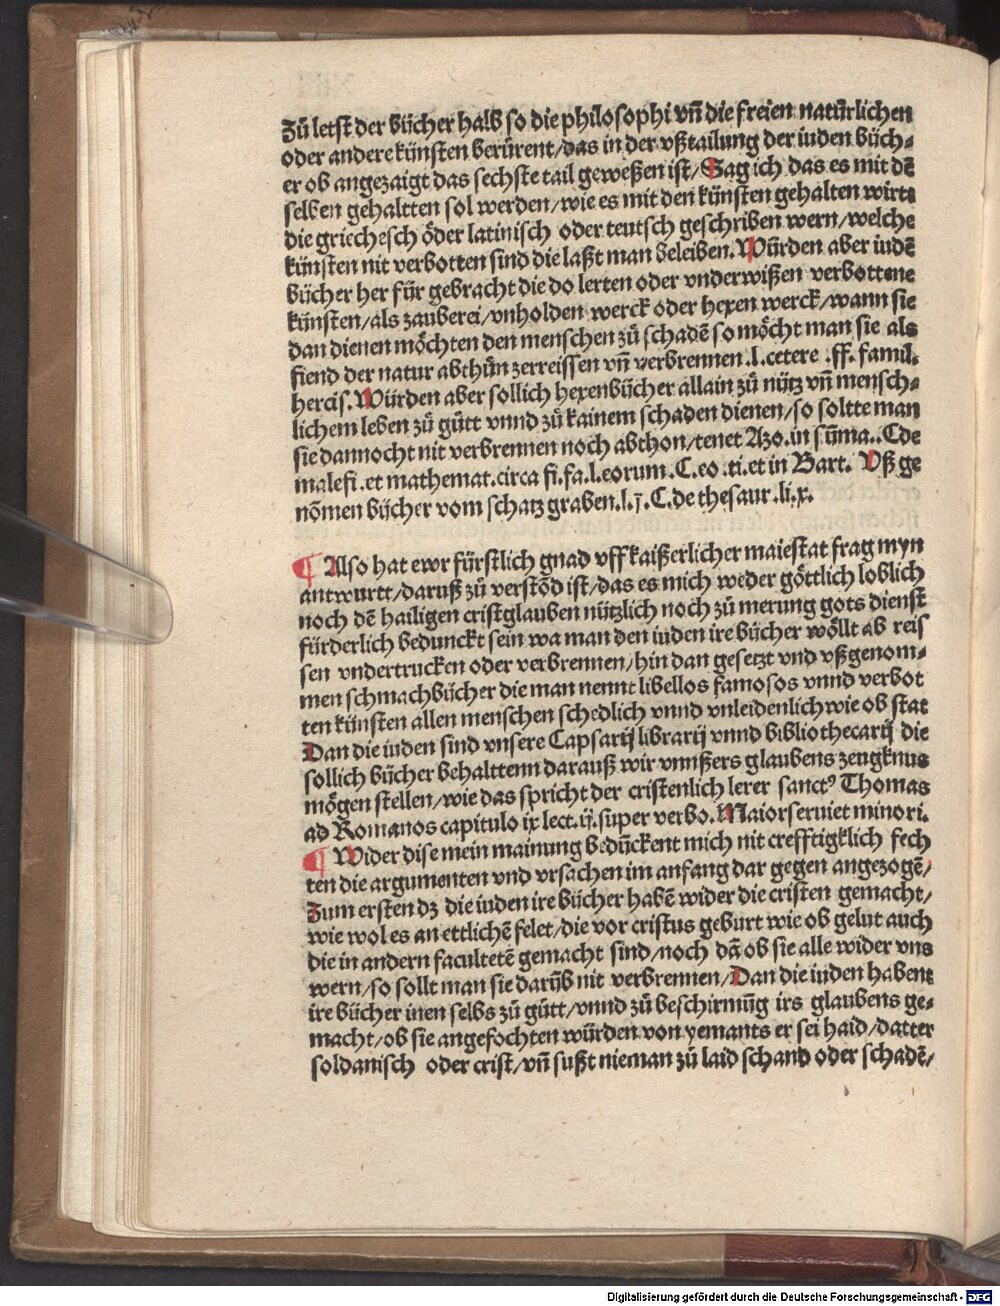 Zů letst der bücher halb so die philosophi vñ die freien natürlichen
oder andere künsten berürent/das in der vßtailung der iuden büch⸗
er ob angezaigt das sechste tail geweßen ist/Sag ich das es mit dē
selben gehaltten sol werden/wie es mit den künsten gehalten wirt
die griechesch öder latinisch oder teutsch geschriben wern/welche
künsten nit verbotten sind die laßt man beleiben.Würden aber iudē
bücher her für gebracht die do lerten oder vnderwißen verbottene
künsten/als zauberei/vnholden werck oder hexen werck/wann sie
dan dienen möchten den menschen zů schadē so möcht man sie als
fiend der natur abthůn zerreissen vñ verbrennen.l.cetere .ff.famil.
hercis.Würden aber sollich hexenbücher allain zů nütz vñ mensch⸗
lichem leben zů gůtt vnnd zů kainem schaden dienen/so soltte man
sie dannocht nit verbrennen noch abthon/tenet Azo.in sūma..C.de
malefi.et mathemat.circa fi.fa.l.eorum.C.eo.ti.et in Bart. Vß ge
nōmen bücher vom schatz graben.l.j.C.de thesaur.li.x.
¶ Also hat ewr fürstlich gnad vff kaißerlicher maiestat frag myn
antwurtt/daruß zů verstōd ist/das es mich weder göttlich loblich
noch dē hailigen cristglauben nützlich noch zů merung gots dienst
fürderlich bedunckt sein wa man den iuden ire bücher wöllt ab reis
sen vndertrucken oder verbrennen/hin dan gesetzt vnd vßgenom⸗
men schmachbücher die man nennt libellos famosos vnnd verbot
ten künsten allen menschen schedlich vnnd vnleidenlich wie ob stat
Dan die iuden sind vnsere Capsarij librarij vnnd bibliothecarij die
sollich bücher behalttenn darauß wir vnnßers glaubens zeugknus
mögen stellen/wie das spricht der cristenlich lerer sanctꝰ Thomas
ad Romanos capitulo ix lect.ij.super verbo.Maior seruiet minori.
¶ Wider dise mein mainung bedūckent mich nit crefftigklich fech
ten die argumenten vnd vrsachen im anfang dar gegen angezogē/
Zum ersten dz die iuden ire bücher habē wider die cristen gemacht/
wie wol es an ettlichē felet/die vor cristus geburt wie ob gelut auch
die in andern facultetē gemacht sind/noch dā ob sie alle wider vns
wern/so sollt man sie darūb nit verbrennen/Dan die iuden habent
ire bücher inen selbs zů gůtt/vnnd zů beschirmūg irs glaubens ge⸗
macht/ob sie angefochten würden von yemants er sei haid/datter
soldanisch oder crist/vñ sußt nieman zů laid schand oder schadē/
Digitalisierung gefördert durch die Deutsche Forschungsgemeinschaft - DFG